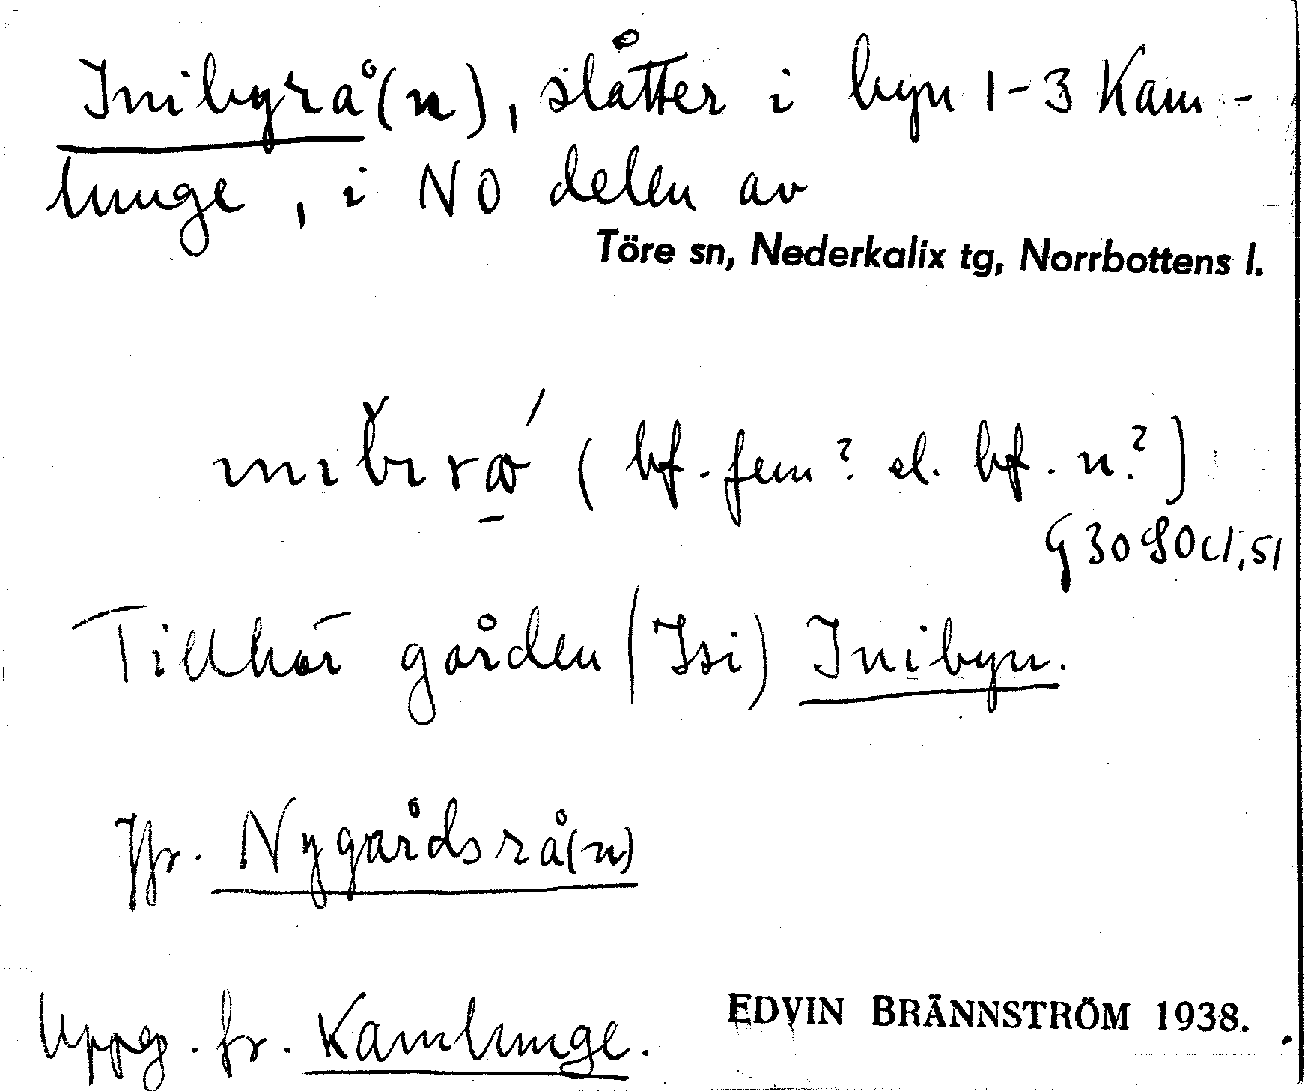 Inibyrå(n), slåtter i byn 1-3 Kam-
lunge, i NO delen av
Töre sn, Nederkalix tg, Norrbottens l.
(bf. fem? el. bf. n.?)
Tillhör gården (Isi) Inibyn.
Jfr. Nygårdsrå(n)
Uppg. fr. Kamlunge.
EDVIN BRÄNNSTRÖM 1938.